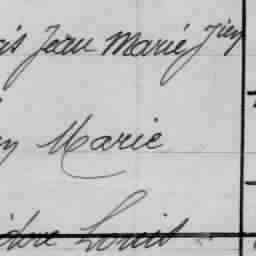 is Jean Marie
Marie
dore Louis